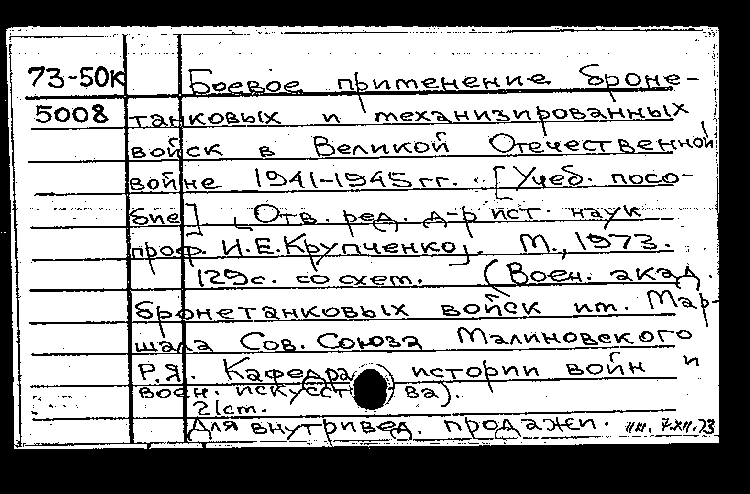 73-50к Боевое применение броне-
5008 танковых и механизированных
войск в Великой Отечественной
войне 1941-1945 гг. [Учеб. посо-
бие] [Отв. ред. д-р ист. наук
проф. И.Е.Крупченко]. М., 1973.
129с. со схем. (Воен. акад.
бронетанковых войск им. Мар-
шала Сов. Союза Малиновского
Р.Я. Кафедра истории войн и
воен. искусства).
Для внутривед. продажи. 7.XII.73